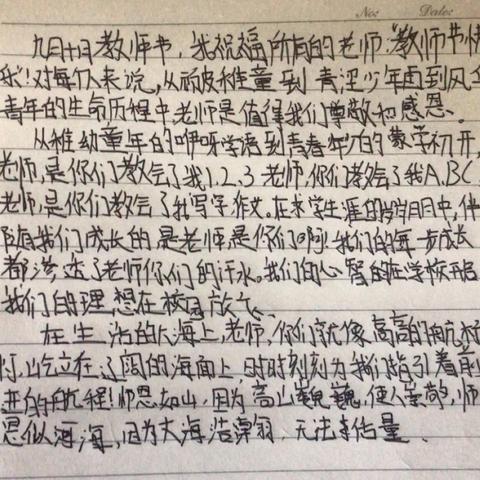 No: Date:
九月十日教师节，我祝福所有的老师："教师节快
乐！对每个人来说，从顽皮稚童到青涩少年再到风华
青年的生命历程中，老师是值得我们尊敬和感恩。
从稚幼童年的咿呀学语到青春年少的蒙学初开，
老师，是你们教会了我1.2.3老师，你们教会了我A,B,C
老师，是你们教会了我写字作文。在求学生涯的岁月中，伴
随我们成长的是老师，是你们啊！我们的每一步成长
都渗透了老师你们的汗水。我们的心智的在学校开启
我们的理想在校园放飞。
在生活的大海上，老师，你们就像高高的航标
灯，屹立在辽阔的海面上，时时刻刻为我们指引着前
进的航程！师恩如山，因为高山巍巍，使人崇敬，师
恩似河海，因为大海浩瀚，无法估量。